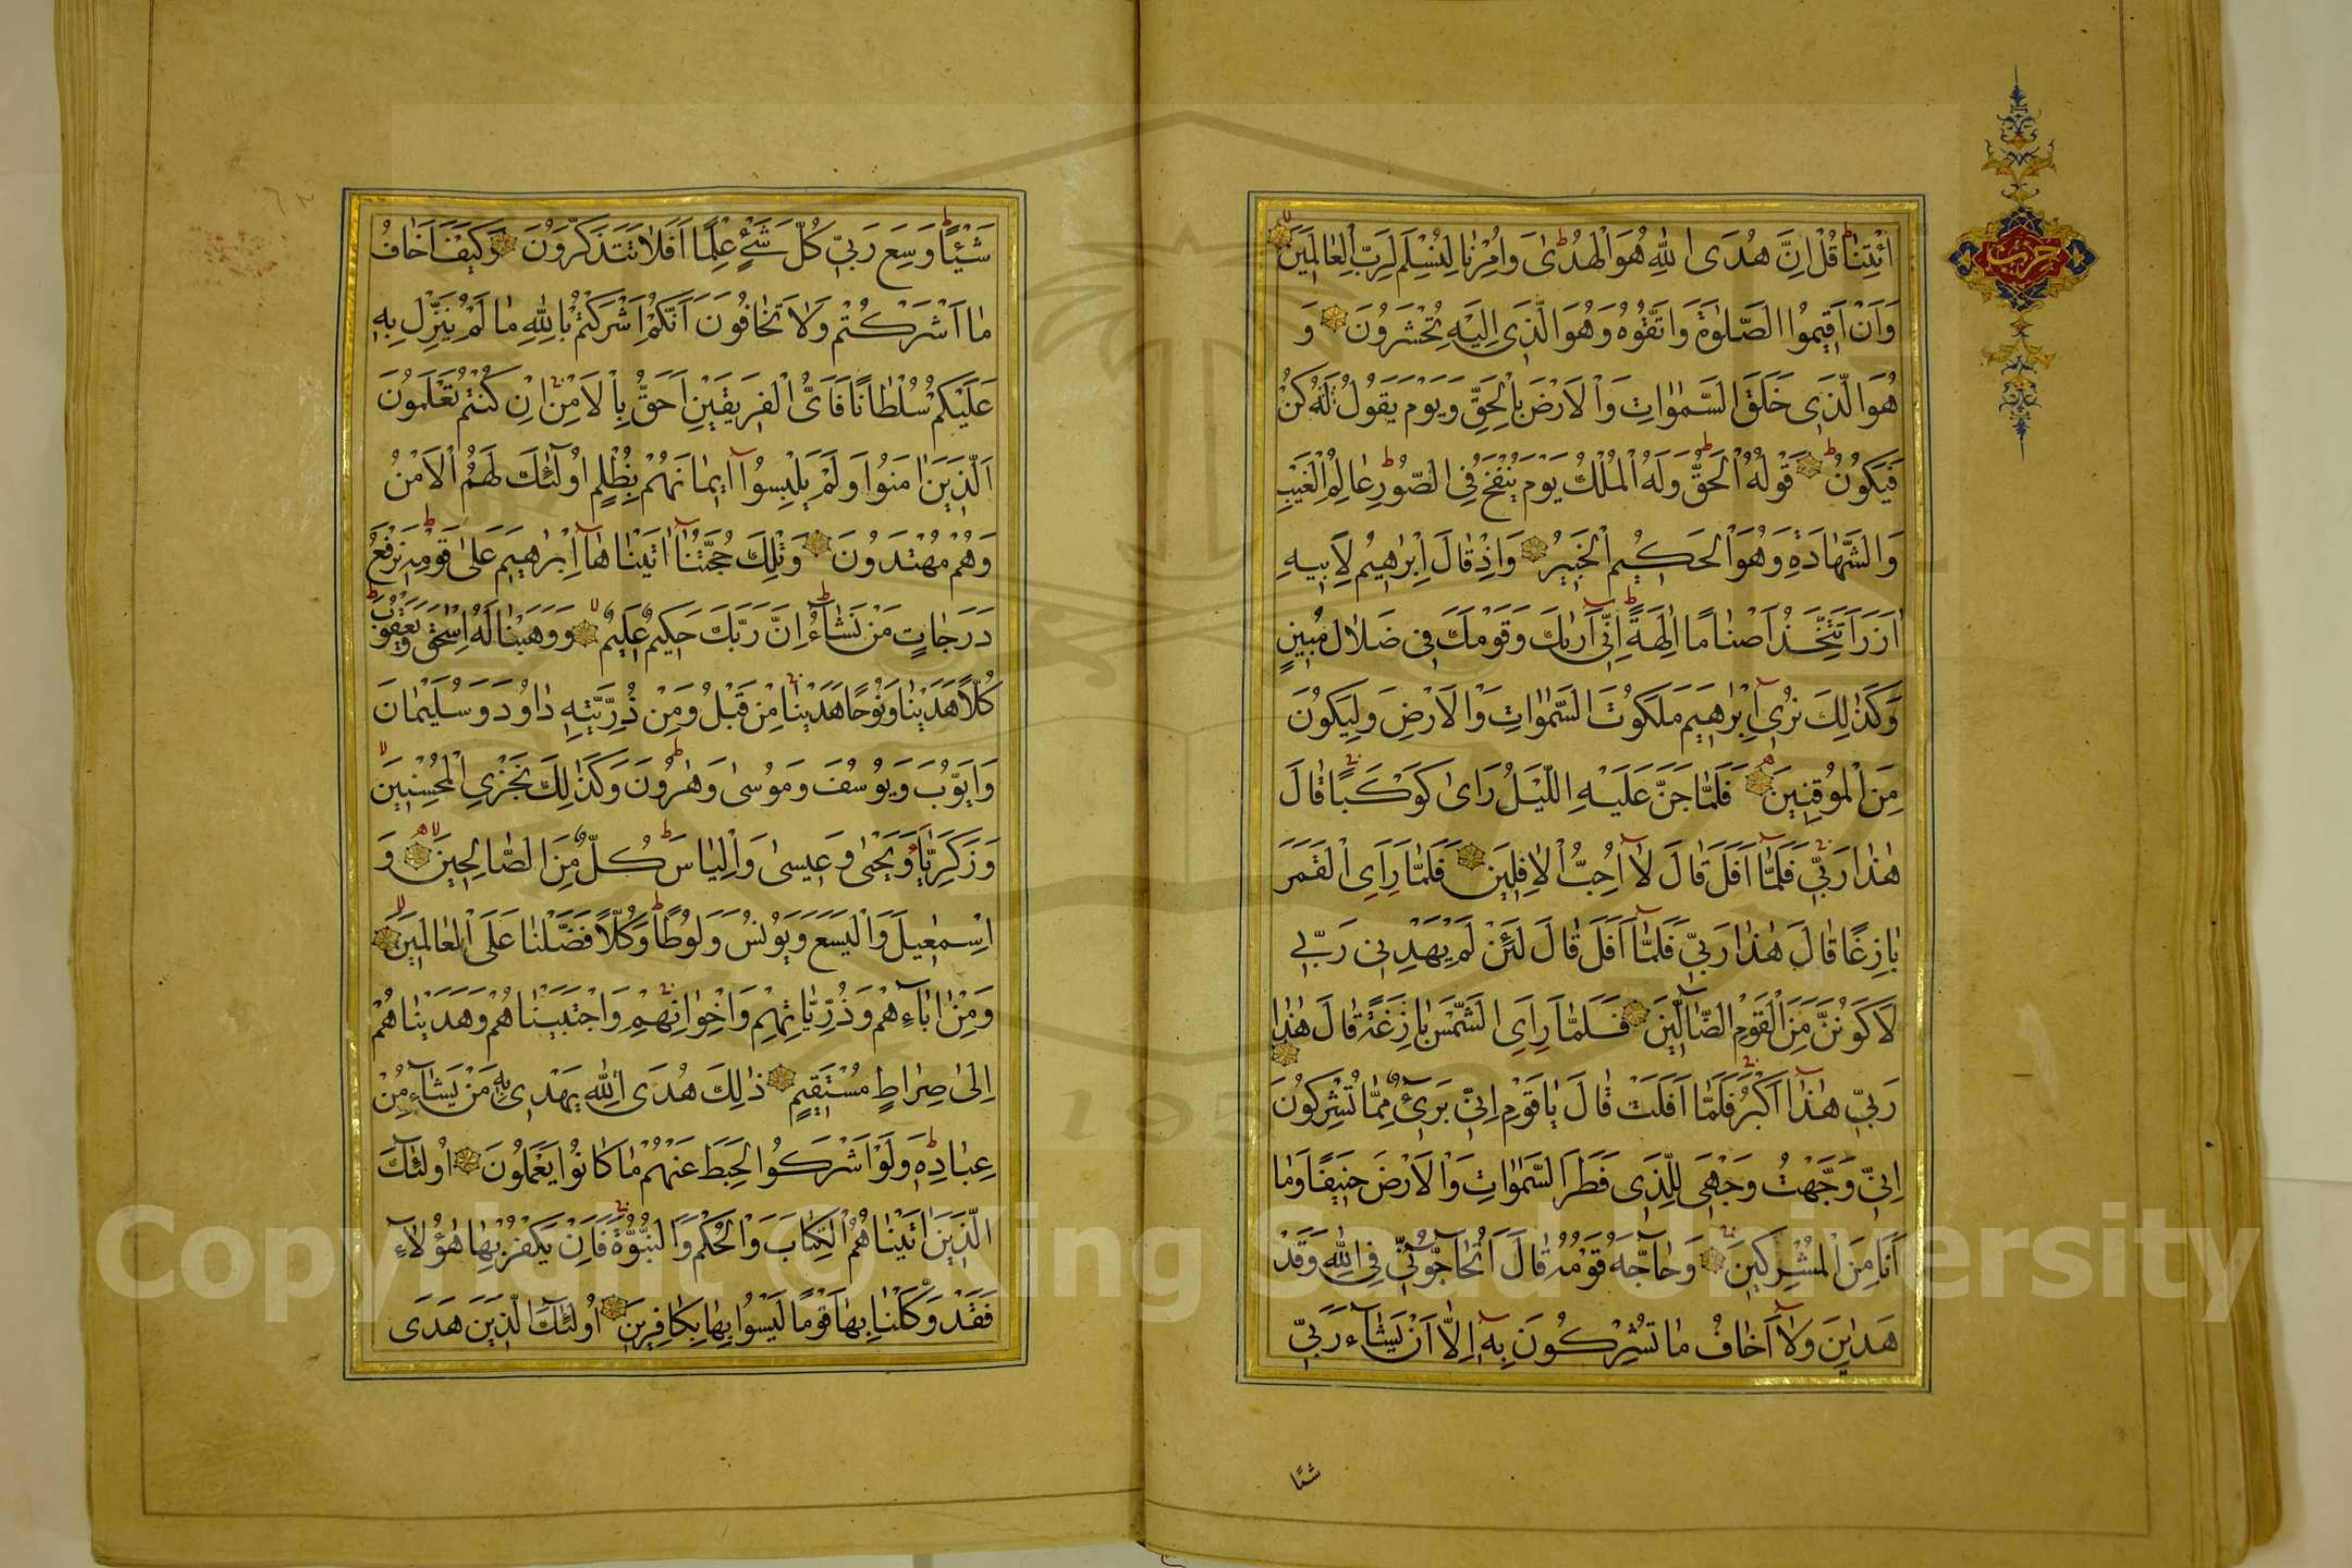 ائْتِنَا قُلْ اِنَّ هُدَى اللّٰهِ هُوَ الْهُدٰى وَاُمِرْنَا لِنُسْلِمَ لِرَبِّ الْعَالَمِينَ
وَاَنْ اَقِيمُوا الصَّلٰوةَ وَاتَّقُوهُ وَهُوَ الَّذِى اِلَيْهِ تُحْشَرُونَ وَ
هُوَ الَّذِى خَلَقَ السَّمٰوَاتِ وَالْاَرْضَ بِالْحَقِّ وَيَوْمَ يَقُولُ كُنْ
فَيَكُونُ قَوْلُهُ الْحَقُّ وَلَهُ الْمُلْكُ يَوْمَ يُنْفَخُ فِى الصُّورِ عَالِمُ الْغَيْبِ
وَالشَّهَادَةِ وَهُوَ الْحَكِيمُ الْخَبِيرُ وَاِذْ قَالَ اِبْرٰهِيمُ لِاَبِيهِ
اٰزَرَ اَتَتَّخِذُ اَصْنَامًا اٰلِهَةً اِنِّى اَرٰيكَ وَقَوْمَكَ فِى ضَلَالٍ مُبِينٍ
وَكَذٰلِكَ نُرِى اِبْرٰهِيمَ مَلَكُوتَ السَّمٰوَاتِ وَالْاَرْضِ وَلِيَكُونَ
مِنَ الْمُوقِنِينَ فَلَمَّا جَنَّ عَلَيْهِ اللَّيْلُ رَاٰى كَوْكَبًا قَالَ
هٰذَا رَبِّى فَلَمَّا اَفَلَ قَالَ لَا اُحِبُّ الْاٰفِلِينَ فَلَمَّا رَاَى الْقَمَرَ
بَازِغًا قَالَ هٰذَا رَبِّى فَلَمَّا اَفَلَ قَالَ لَئِنْ لَمْ يَهْدِنِى رَبِّى
لَاَكُونَنَّ مِنَ الْقَوْمِ الضَّالِّينَ فَلَمَّا رَاَى الشَّمْسَ بَازِغَةً قَالَ هٰذَا
رَبِّى هٰذَا اَكْبَرُ فَلَمَّا اَفَلَتْ قَالَ يَا قَوْمِ اِنِّى بَرِىءٌ مِمَّا تُشْرِكُونَ
اِنِّى وَجَّهْتُ وَجْهِىَ لِلَّذِى فَطَرَ السَّمٰوَاتِ وَالْاَرْضَ حَنِيفًا وَمَا
اَنَا مِنَ الْمُشْرِكِينَ وَحَاجَّهُ قَوْمُهُ قَالَ اَتُحَاجُّونِّى فِى اللّٰهِ وَقَدْ
هَدٰينِ وَلَا اَخَافُ مَا تُشْرِكُونَ بِهِ اِلَّا اَنْ يَشَاءَ رَبِّى
حزب
شَيْئًا
شَيْئًا وَسِعَ رَبِّى كُلَّ شَىْءٍ عِلْمًا اَفَلَا تَتَذَكَّرُونَ وَكَيْفَ اَخَافُ
مَا اَشْرَكْتُمْ وَلَا تَخَافُونَ اَنَّكُمْ اَشْرَكْتُمْ بِاللّٰهِ مَا لَمْ يُنَزِّلْ بِهِ
عَلَيْكُمْ سُلْطَانًا فَاَىُّ الْفَرِيقَيْنِ اَحَقُّ بِالْاَمْنِ اِنْ كُنْتُمْ تَعْلَمُونَ
اَلَّذِينَ اٰمَنُوا وَلَمْ يَلْبِسُوا اِيمَانَهُمْ بِظُلْمٍ اُولٰئِكَ لَهُمُ الْاَمْنُ
وَهُمْ مُهْتَدُونَ وَتِلْكَ حُجَّتُنَا اٰتَيْنَاهَا اِبْرٰهِيمَ عَلٰى قَوْمِهِ نَرْفَعُ
دَرَجَاتٍ مَنْ نَشَاءُ اِنَّ رَبَّكَ حَكِيمٌ عَلِيمٌ وَوَهَبْنَا لَهُ اِسْحٰقَ وَيَعْقُوبَ
كُلًّا هَدَيْنَا وَنُوحًا هَدَيْنَا مِنْ قَبْلُ وَمِنْ ذُرِّيَّتِهِ دَاوُدَ وَسُلَيْمَانَ
وَاَيُّوبَ وَيُوسُفَ وَمُوسٰى وَهٰرُونَ وَكَذٰلِكَ نَجْزِى الْمُحْسِنِينَ
وَزَكَرِيَّا وَيَحْيٰى وَعِيسٰى وَاِلْيَاسَ كُلٌّ مِنَ الصَّالِحِينَ وَ
اِسْمٰعِيلَ وَالْيَسَعَ وَيُونُسَ وَلُوطًا وَكُلًّا فَضَّلْنَا عَلَى الْعَالَمِينَ
وَمِنْ اٰبَاءِهِمْ وَذُرِّيَّاتِهِمْ وَاِخْوَانِهِمْ وَاجْتَبَيْنَاهُمْ وَهَدَيْنَاهُمْ
اِلٰى صِرَاطٍ مُسْتَقِيمٍ ذٰلِكَ هُدَى اللّٰهِ يَهْدِى بِهِ مَنْ يَشَاءُ مِنْ
عِبَادِهِ وَلَوْ اَشْرَكُوا لَحَبِطَ عَنْهُمْ مَا كَانُوا يَعْمَلُونَ اُولٰئِكَ
الَّذِينَ اٰتَيْنَاهُمُ الْكِتَابَ وَالْحُكْمَ وَالنُّبُوَّةَ فَاِنْ يَكْفُرْ بِهَا هٰؤُلَاءِ
فَقَدْ وَكَّلْنَا بِهَا قَوْمًا لَيْسُوا بِهَا بِكَافِرِينَ اُولٰئِكَ الَّذِينَ هَدَى
Copyright © King Saud University